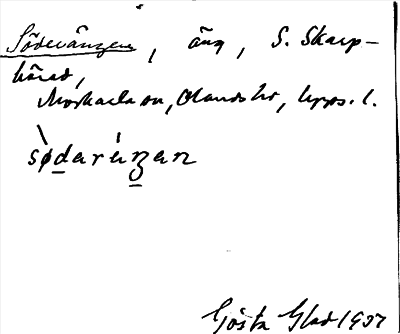 Söderängen, äng, S. Skarp-
härad,
Morkarla sn, Olands hd, Upps. l.
södaräŋan
Gösta Glad 1937